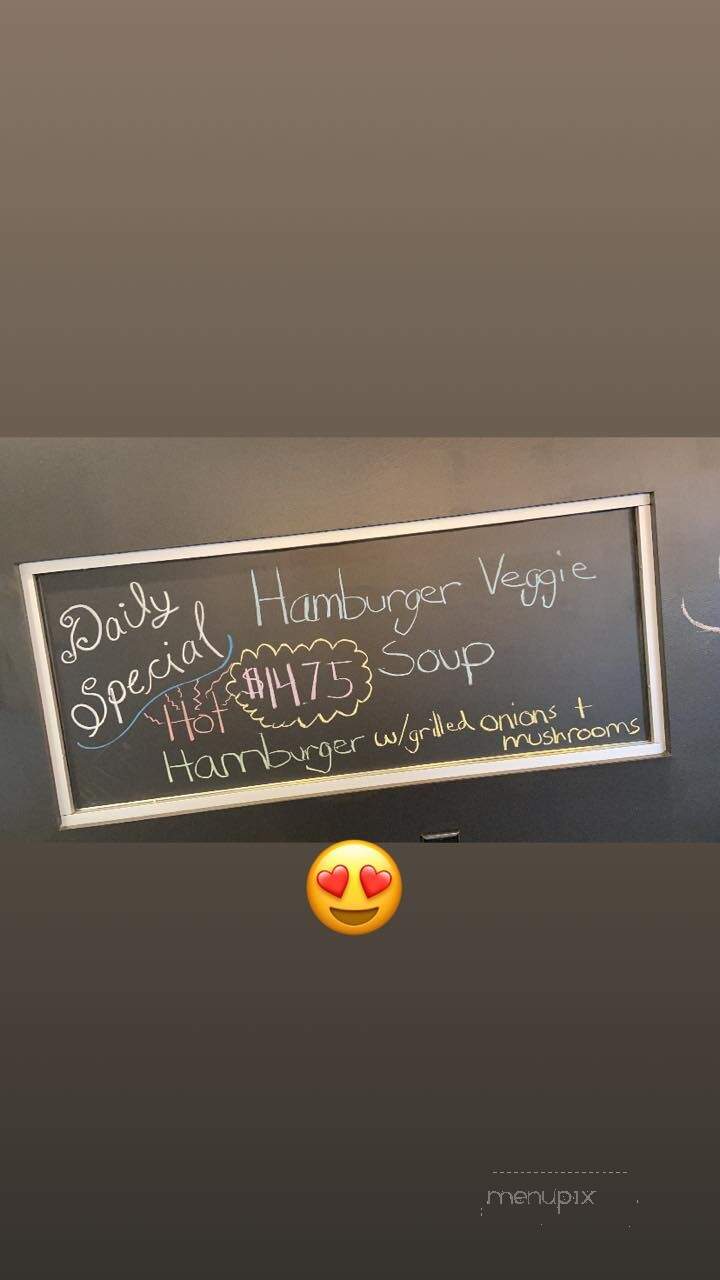 Daily
Special
Hamburger Veggie
Soup
$14.75
Hot
Hamburger w/grilled onions +
mushrooms
menupix